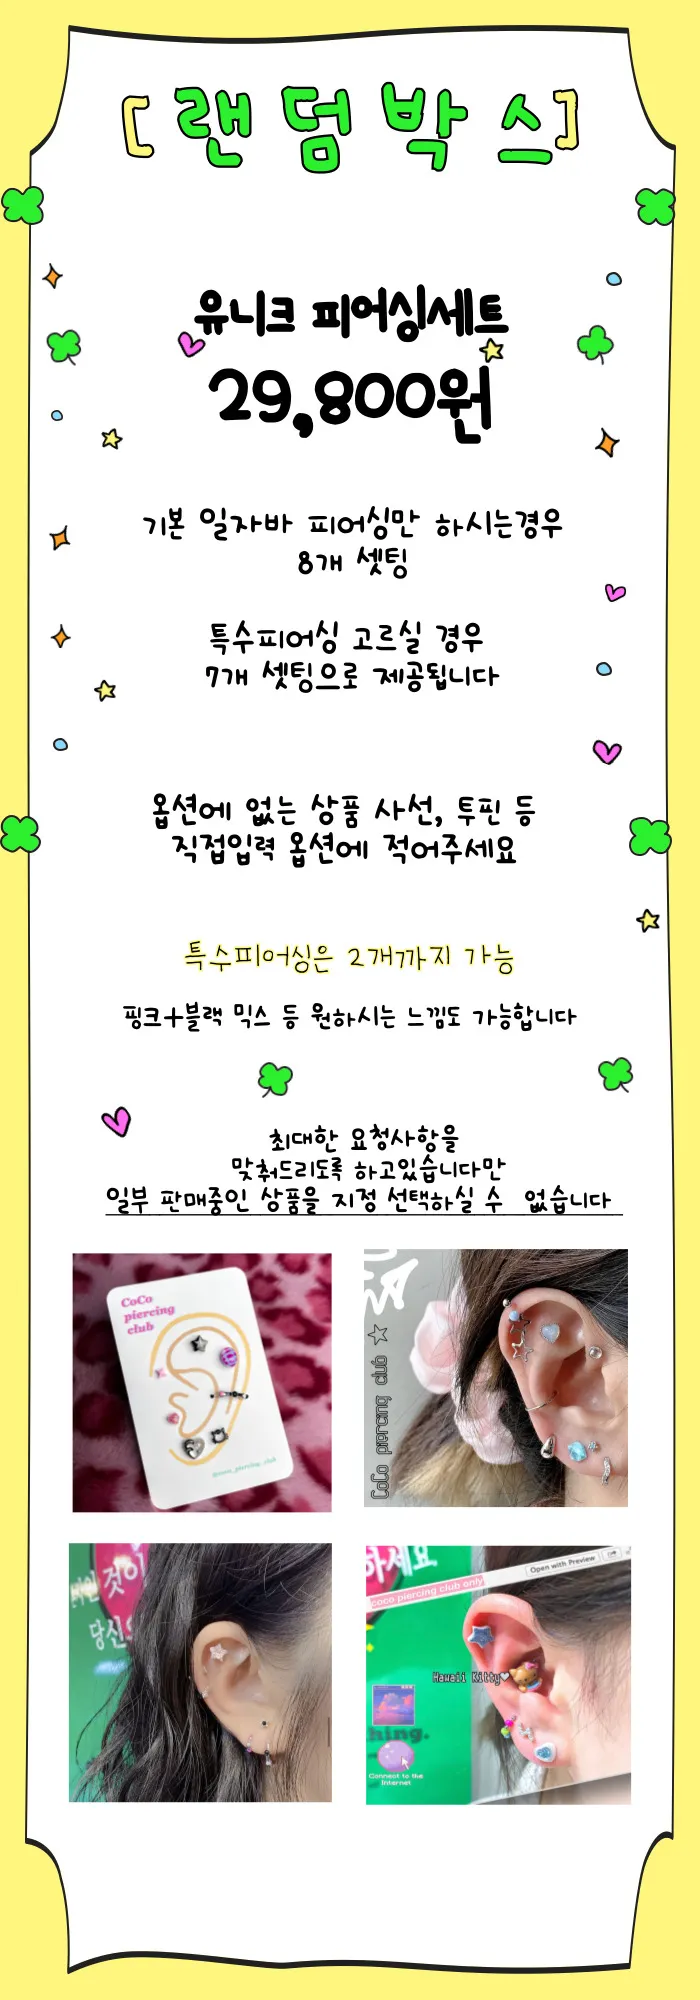 [랜덤박스]
유니크 피어싱세트
29,800원
기본 일자바 피어싱만 하시는경우
8개 셋팅
특수피어싱 고르실 경우
7개 셋팅으로 제공됩니다
옵션에 없는 상품 사선, 투핀 등
직접입력 옵션에 적어주세요
특수피어싱은 2개까지 가능
핑크+블랙 믹스 등 원하시는 느낌도 가능합니다
최대한 요청사항을
맞춰드리도록 하고있습니다만
일부 판매중인 상품을 지정 선택하실 수 없습니다
CoCo
piercing
club
@coco_piercing_club
CoCo piercing club
것이
당신
하세요
Open with Preview
coco piercing club only
Hawaii Kitty
hing.
Connect to the
Internet